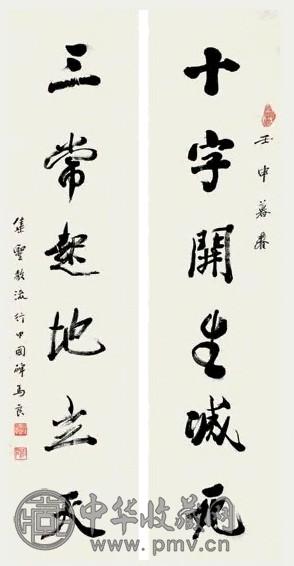 壬申暮春
十字開生滅死
三常起地立天
集教流行中國碑馬良
中华收藏网
www.pmv.cn